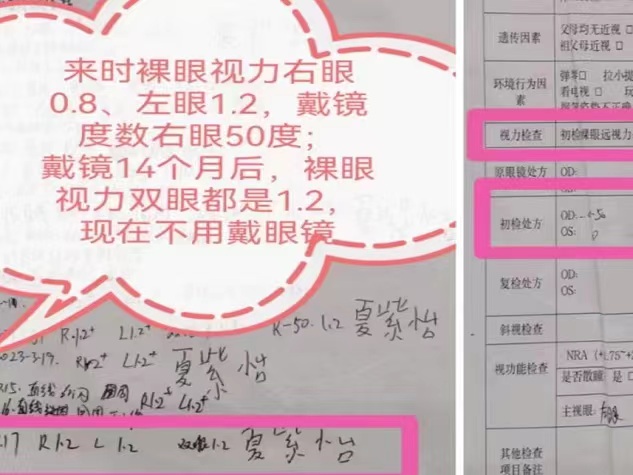 来时裸眼视力右眼
0.8、左眼1.2，戴镜
度数右眼50度；
戴镜14个月后，裸眼
视力双眼都是1.2，
现在不用戴眼镜
R1.2⁺ L1.2⁺ R-50. 1.2 夏紫怡
2023-3-19. R1.2⁺ L1.2⁺ 夏紫怡
R1.2⁺ L1.2⁺
17 R1.2 L 1.2 双眼1.2 夏紫怡
遗传因素
父母均无近视 □
祖父母近视 □
环境行为因
素
弹琴□ 拉小提
看电视 □ 玩
视力检查
初检裸眼远视力
原眼镜处方
OD:
初检处方
OD: -50
OS: 0
复检处方
OD:
OS:
斜视检查
视功能检查
NRA（+1.75~+2
是否散瞳 是 □
主视眼:
其他检查
项目备注